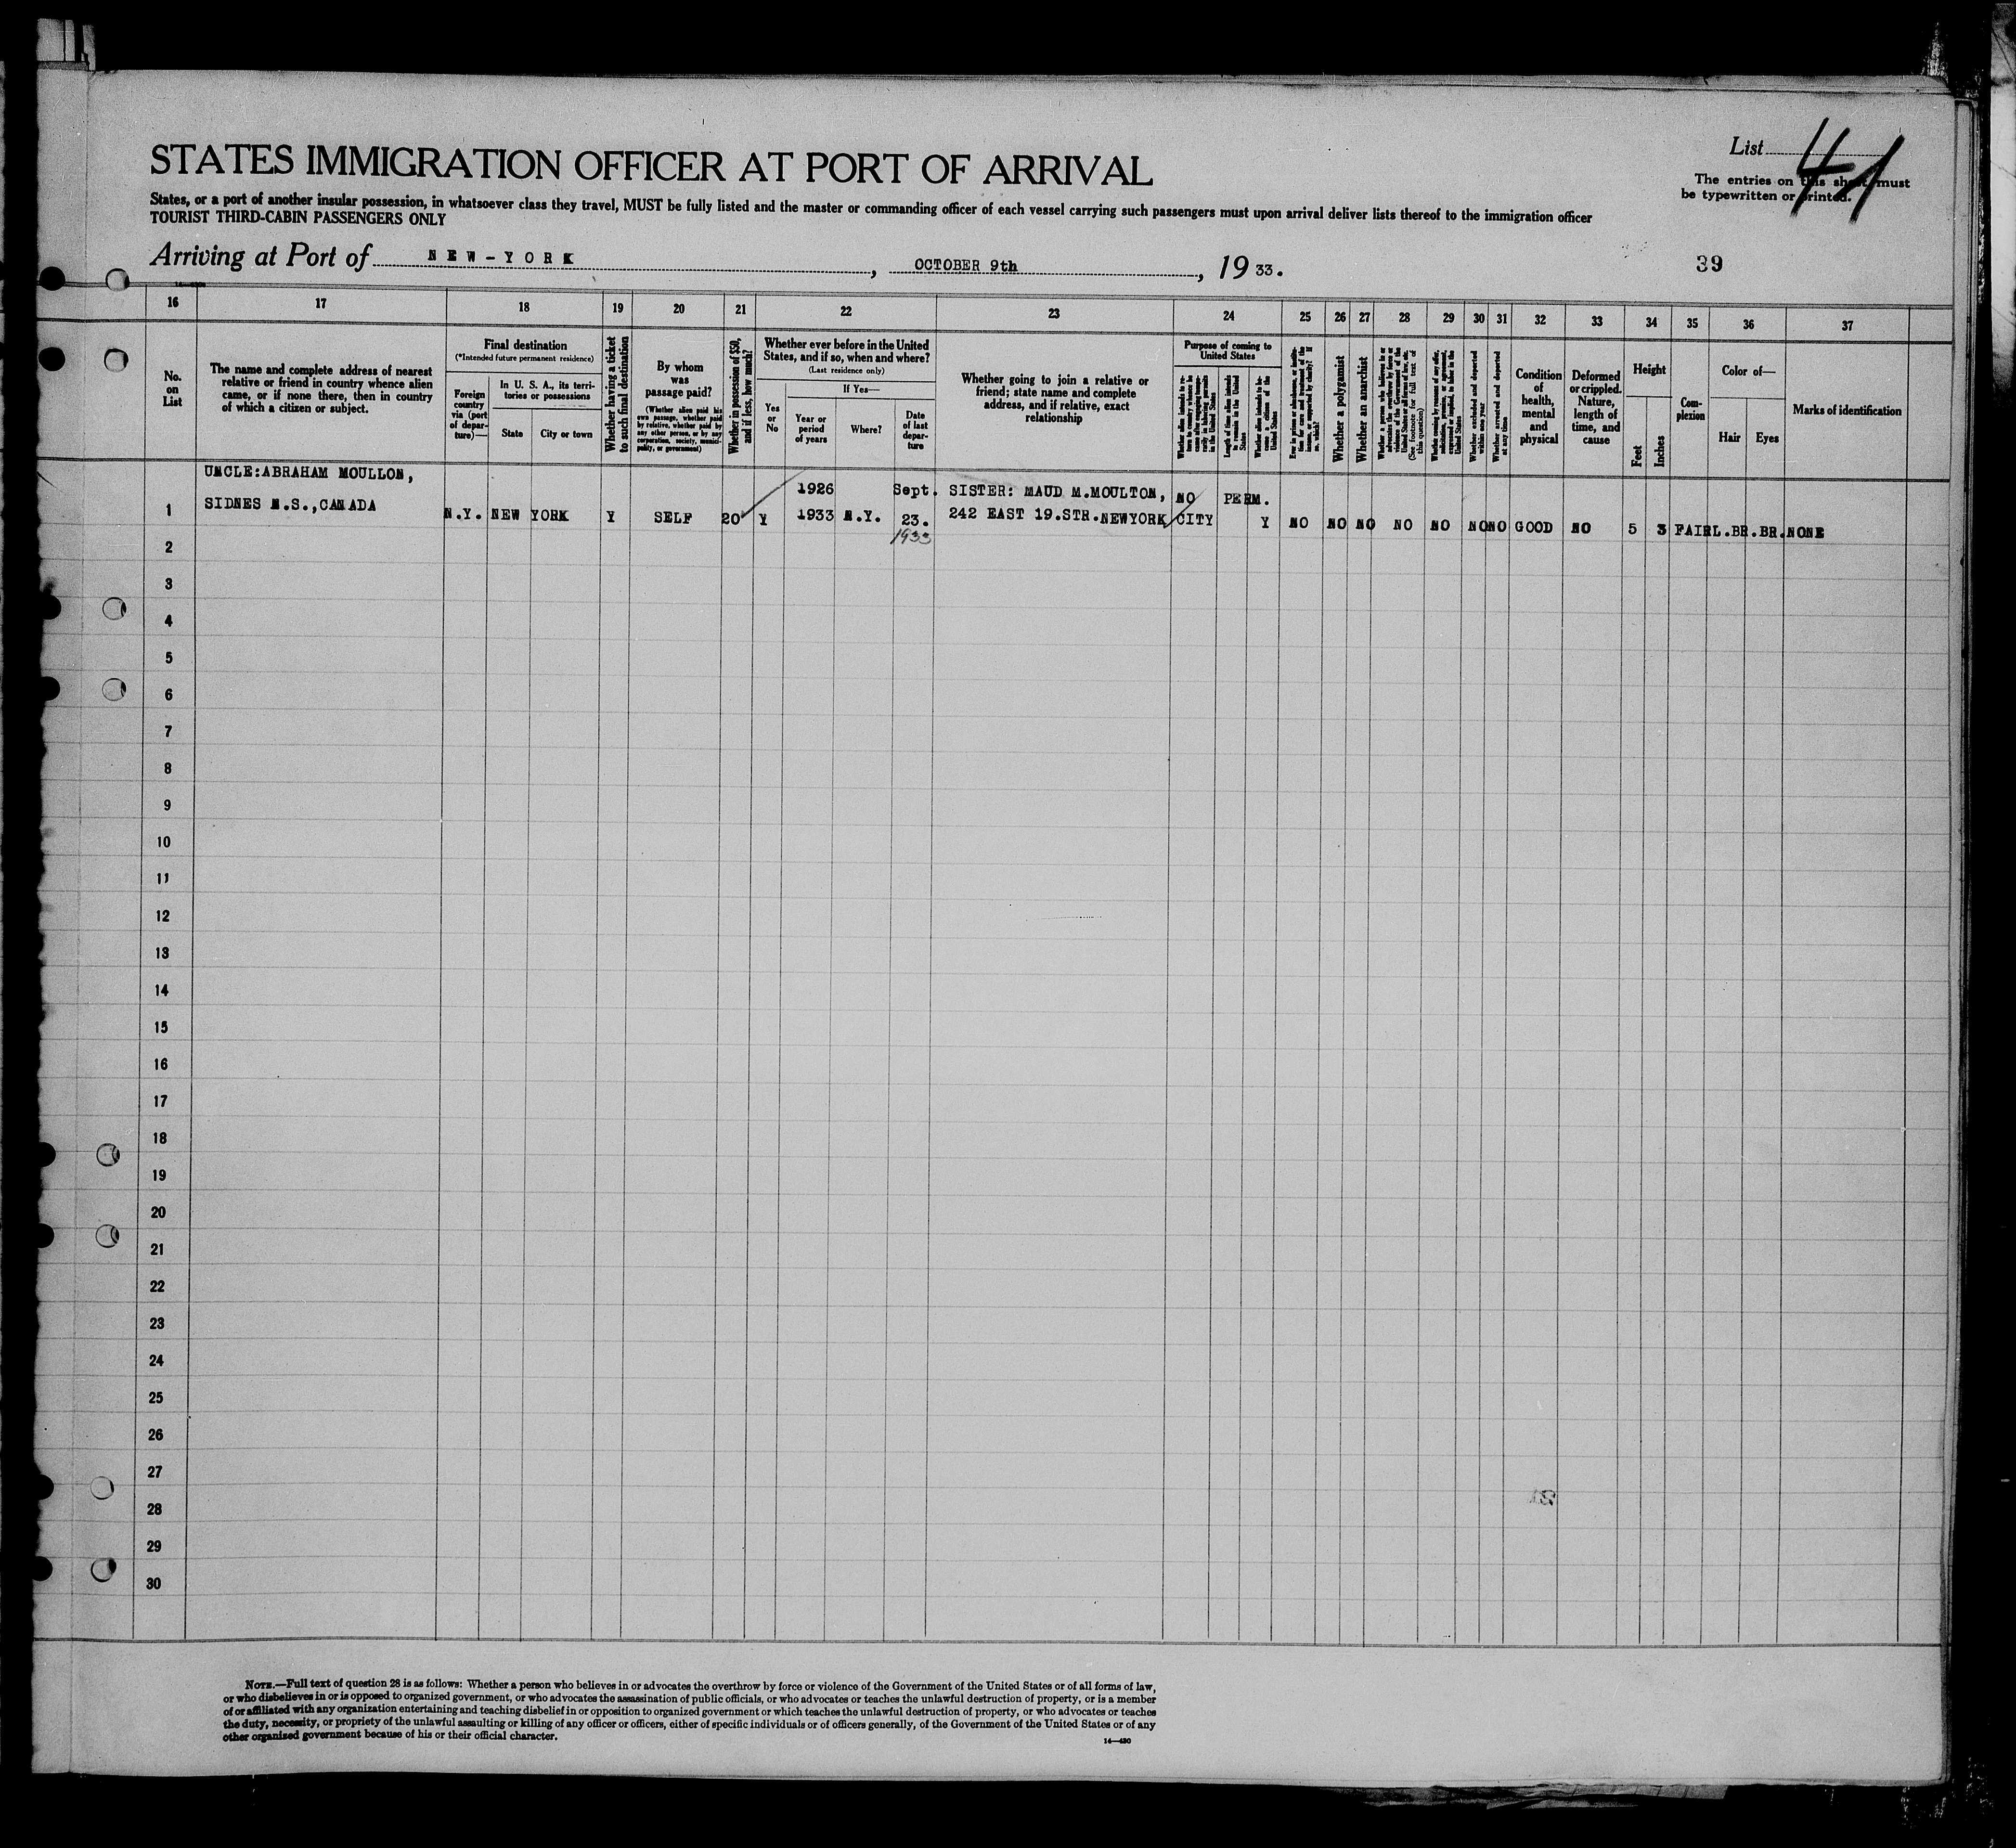 STATES IMMIGRATION OFFICER AT PORT OF ARRIVAL
List 41
The entries on this sheet must
be typewritten or printed.
States, or a port of another insular possession, in whatsoever class they travel, MUST be fully listed and the master or commanding officer of each vessel carrying such passengers must upon arrival deliver lists thereof to the immigration officer
TOURIST THIRD-CABIN PASSENGERS ONLY
Arriving at Port of NEW-YORK, OCTOBER 9th, 1933.
39
16 17 18 19 20 21 22 23 24 25 26 27 28 29 30 31 32 33 34 35 36 37
No.
on
List
The name and complete address of nearest
relative or friend in country whence alien
came, or if none there, then in country
of which a citizen or subject.
Final destination
(*Intended future permanent residence)
Foreign
country
via (port
of depar-
ture)—
In U. S. A., its terri-
tories or possessions
State
City or town
Whether having a ticket
to such final destination
By whom
was
passage paid?
(Whether alien paid his
own passage, whether paid
by relative, whether paid by
any other person, or by any
corporation, society, munici-
pality, or government)
Whether in possession of $50,
and if less, how much?
Whether ever before in the United
States, and if so, when and where?
(Last residence only)
Yes
or
No
If Yes—
Year or
period
of years
Where?
Date
of last
depar-
ture
Whether going to join a relative or
friend; state name and complete
address, and if relative, exact
relationship
Purpose of coming to
United States
Length of time alien intends
to remain in the United
States
Whether alien intends to be-
come a citizen of the
United States
Whether a polygamist
Whether an anarchist
(See footnote for full text of
this question)
Whether excluded and deported
within one year
Whether arrested and deported
at any time
Condition
of
health,
mental
and
physical
Deformed
or crippled.
Nature,
length of
time, and
cause
Height
Feet
Inches
Com-
plexion
Color of—
Hair
Eyes
Marks of identification
UNCLE:ABRAHAM MOULLON,
SIDNES N.S.,CANADA
1 N.Y. NEW YORK Y SELF 20 Y
1926
1933 N.Y.
Sept.
23.
1933
SISTER: MAUD M.MOULTON,
242 EAST 19.STR.NEWYORK CITY
NO PERM. Y NO NO NO NO NO NO NO GOOD NO 5 3 FAIR L.BR.BR.NONE
2
3
4
5
6
7
8
9
10
11
12
13
14
15
16
17
18
19
20
21
22
23
24
25
26
27
28
29
30
NOTE.—Full text of question 28 is as follows: Whether a person who believes in or advocates the overthrow by force or violence of the Government of the United States or of all forms of law,
or who disbelieves in or is opposed to organized government, or who advocates the assassination of public officials, or who advocates or teaches the unlawful destruction of property, or is a member
of or affiliated with any organization entertaining and teaching disbelief in or opposition to organized government or which teaches the unlawful destruction of property, or who advocates or teaches
the duty, necessity, or propriety of the unlawful assaulting or killing of any officer or officers, either of specific individuals or of officers generally, of the Government of the United States or of any
other organized government because of his or their official character.
14—430